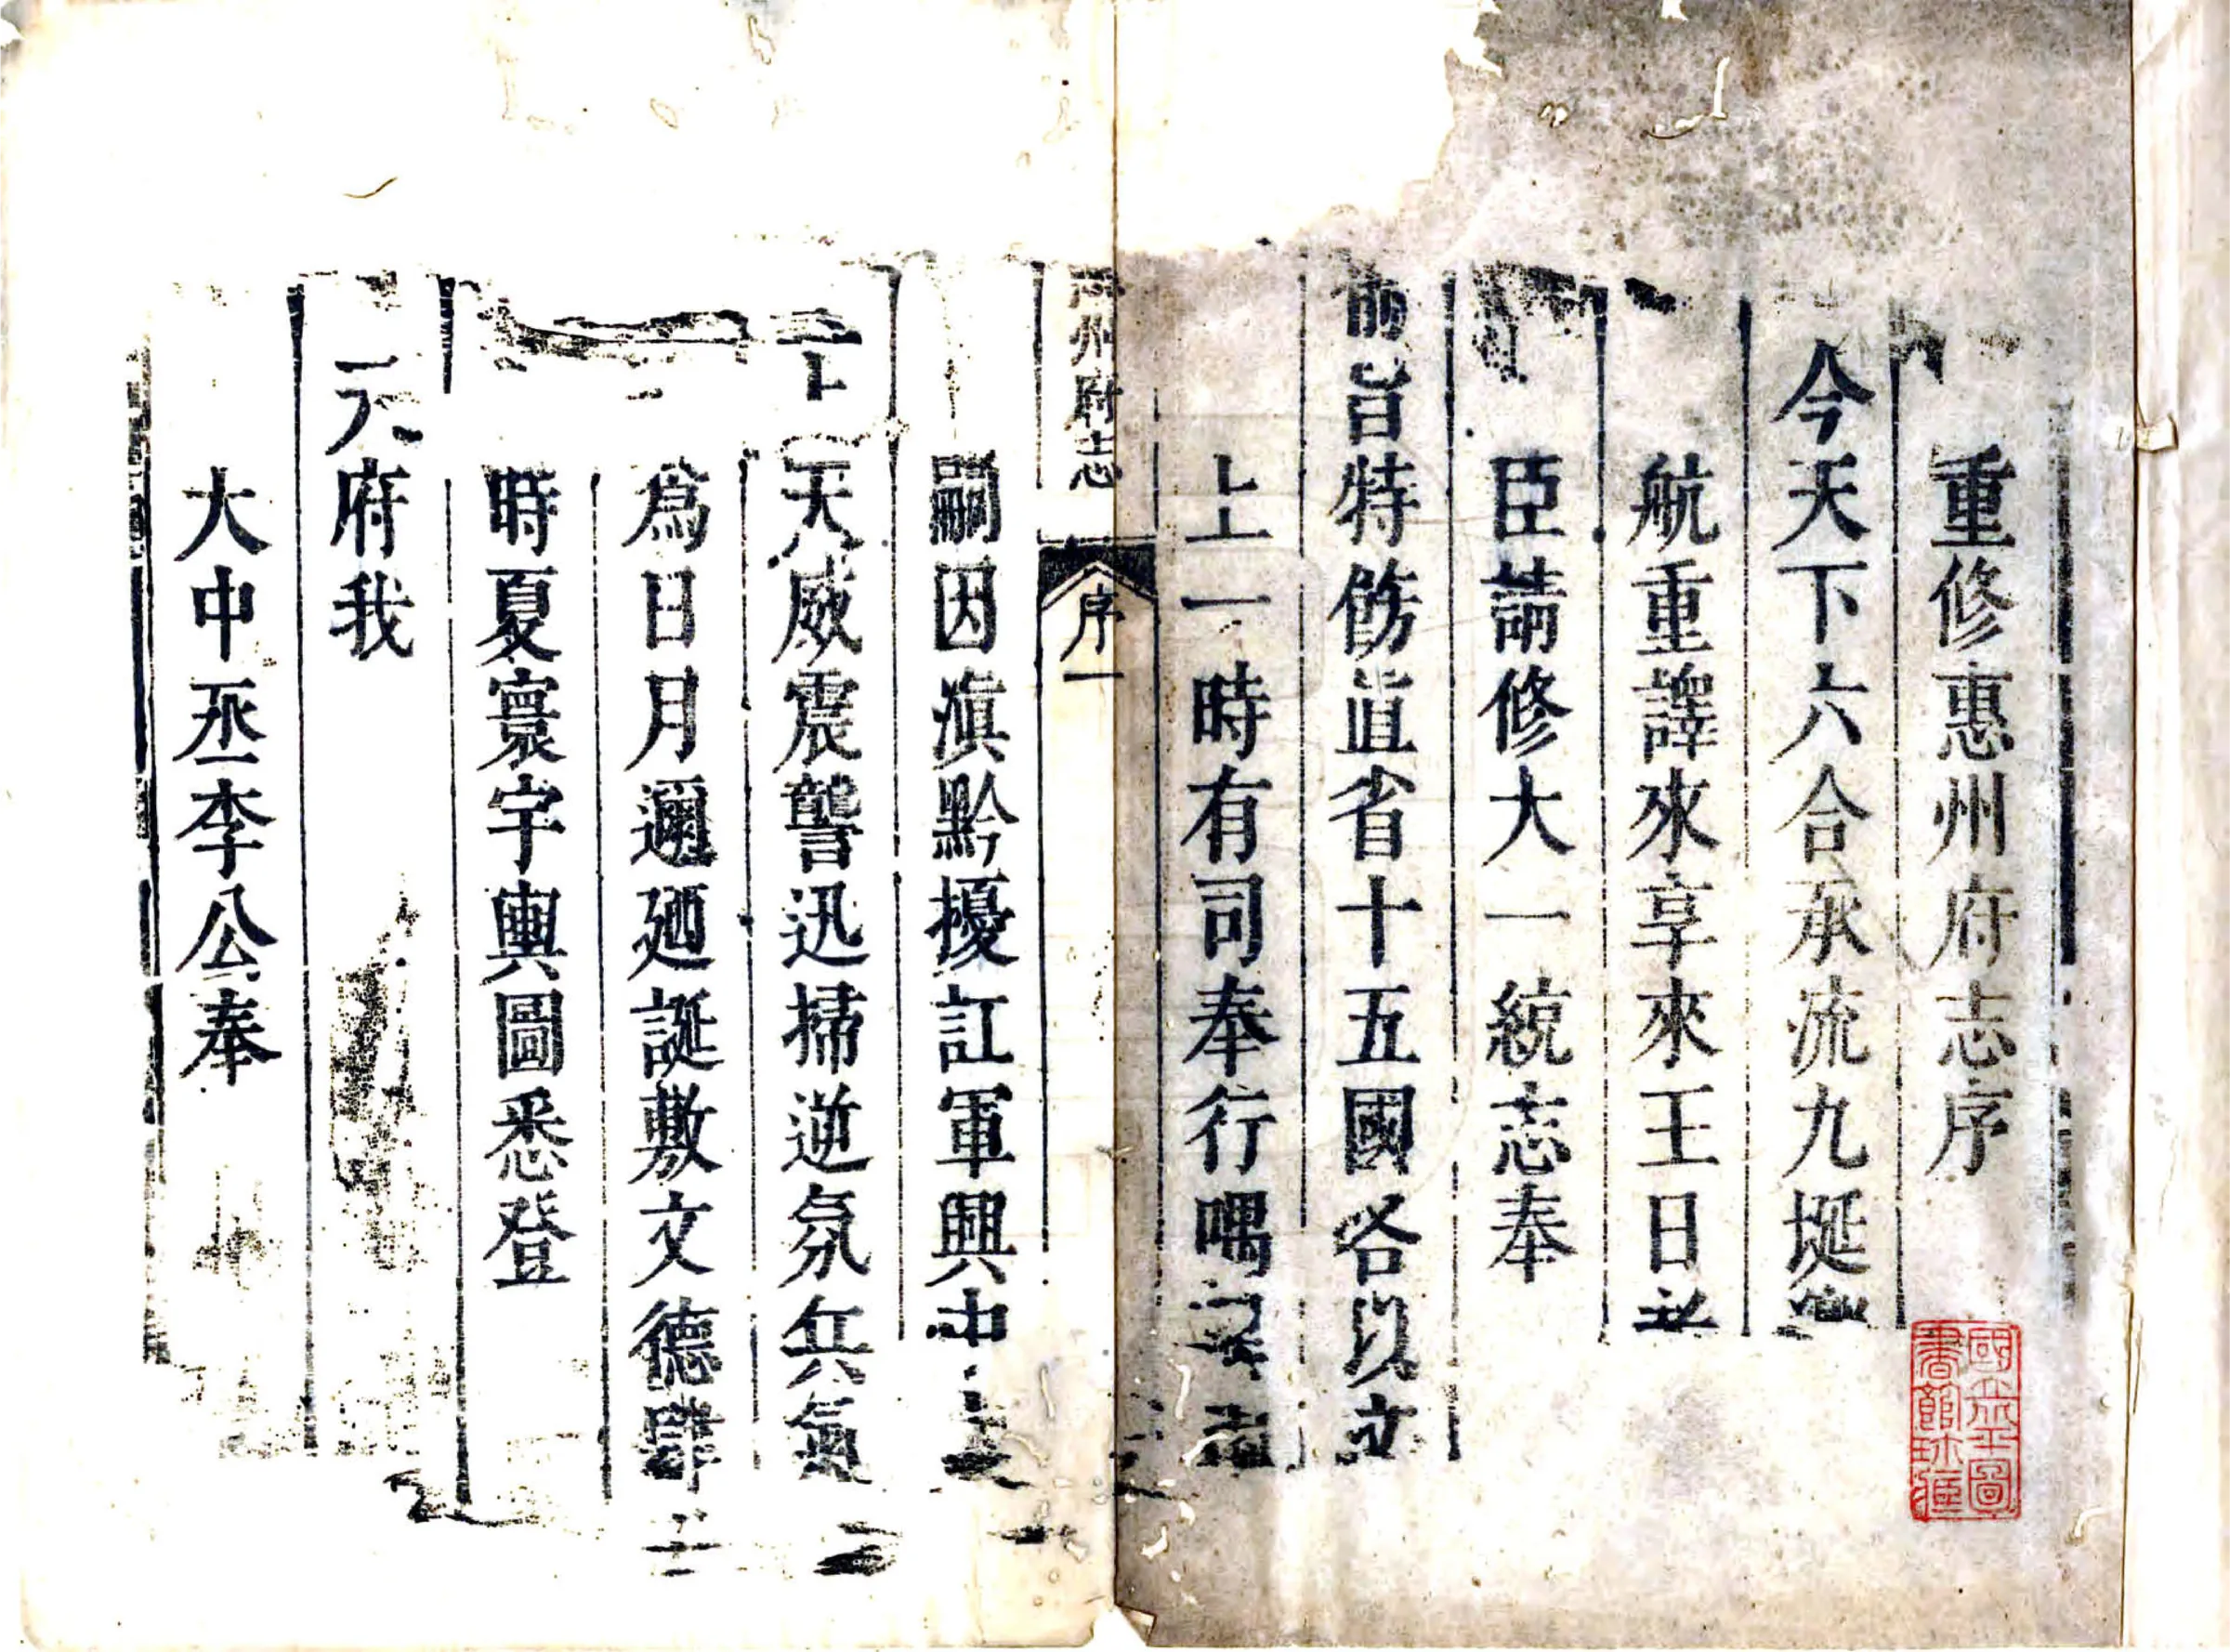 重修惠州府志序
今天下六合承流九埏
航重譯來享來王日
臣請修大一統志奉
前旨特飭直省十五國各以
上一時有司奉行喁
惠州府志
序一
嗣因滇黔擾訌軍興中
天威震讋迅掃逆氛兵氣
爲日月邇廼誕敷文德肆
時夏寰宇輿圖悉登
天府我
大中丞李公奉
國立北平圖
書館珍藏